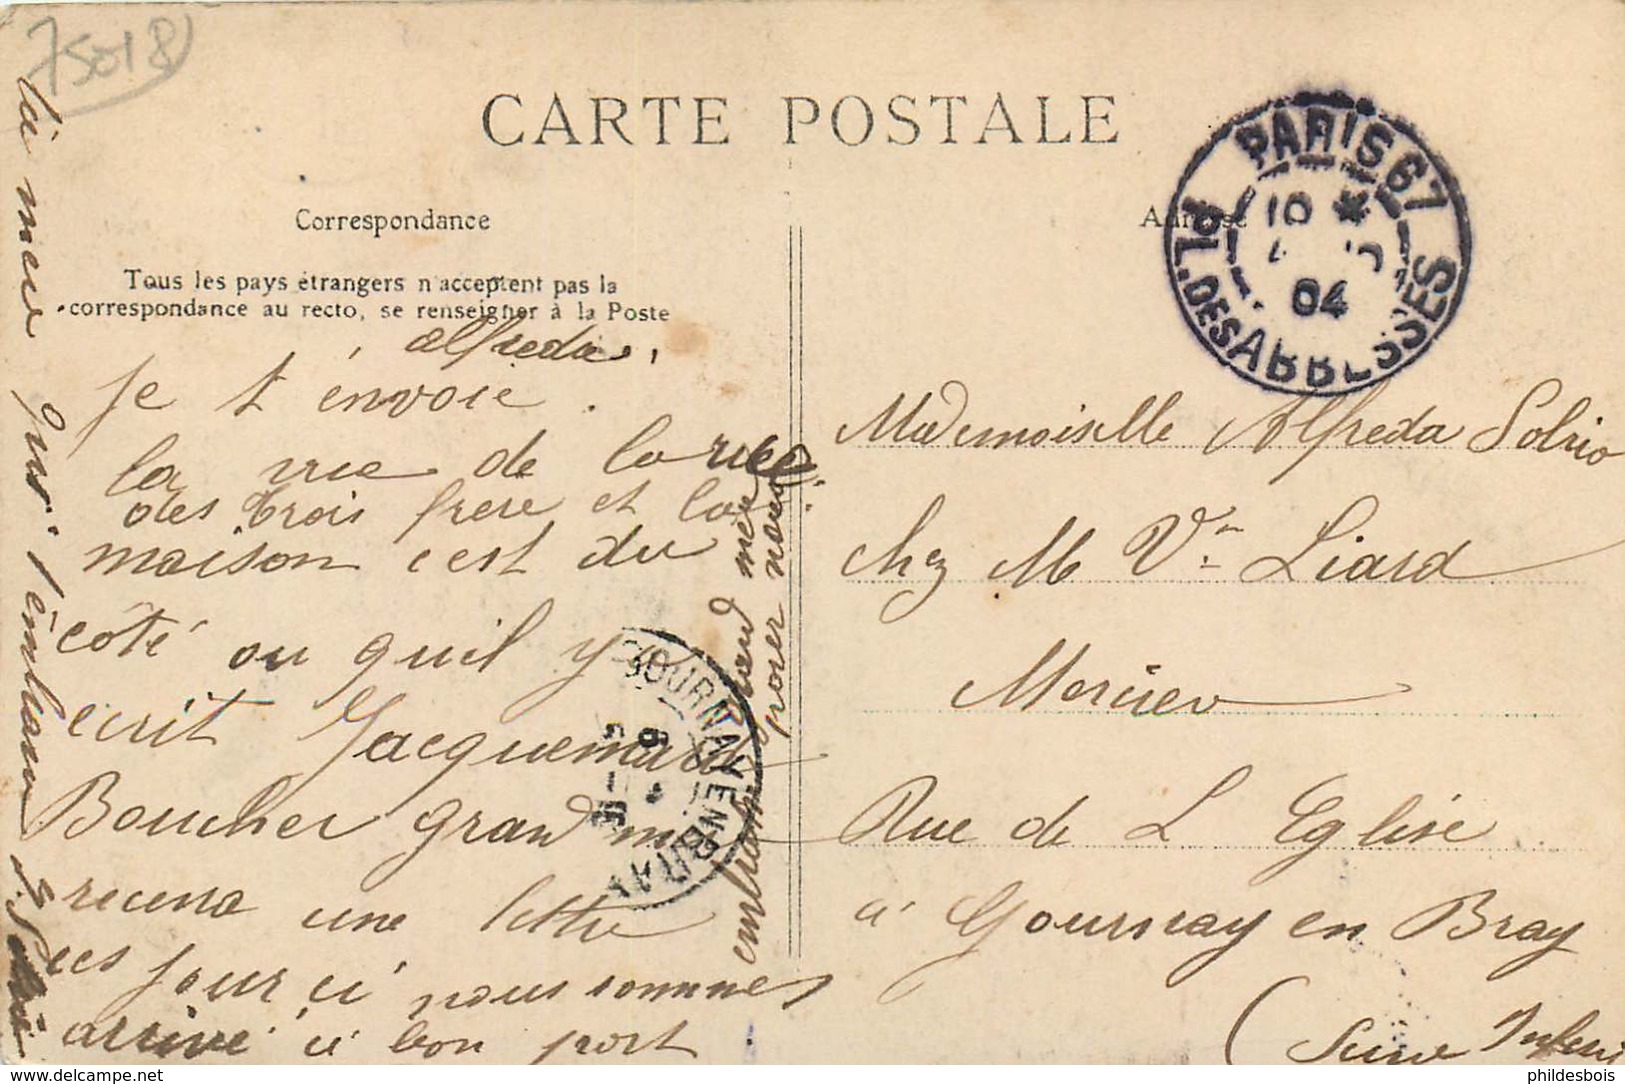 75018
CARTE POSTALE
Correspondance
Adresse
Tous les pays étrangers n'acceptent pas la
correspondance au recto, se renseigner à la Poste
alfreda,
Je t'envoie
la vue de la rue
des trois frere et la
maison c'est du
coté ou quil y a
ecrit Jacquemard
Boucher grand m
recevra une lettre
ces jour ci nous sommes
arrivé ici bon port
embrasse grand mère
pour nous
ta mere qui t'embrasse
PARIS 67
10 *
5
04
PL. DES ABBESSES
GOURNAY EN BRAY
6
Mademoiselle Alfreda Solrio
chez M Vᵐ Liard
Mercier
Rue de L Eglise
à Gournay en Bray
(Seine Inferi
https://www.delcampe.net
phildesbois